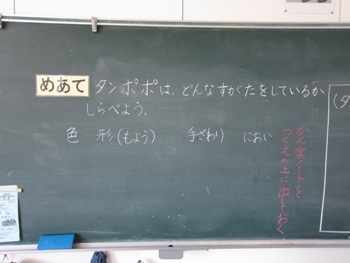 めあて タンポポは、どんなすがたをしているか
しらべよう。
色 形(もよう) 手ざわり におい
かん字ノートを
つくえの上に出しておく
(タ